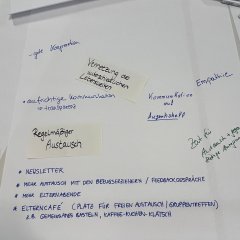 - gute Kooperation
Vernetzung der
unterschiedlichen
Lebenswelten
Empathie
- aufrichtige Kommunikation
Kommunikation
auf
Augenhöhe
Zeit für
Austausch
Regelmäßiger
Austausch
* NEWSLETTER
* MEHR AUSTAUSCH MIT DEN BEZUGSERZIEHERN / FEEDBACKGESPRÄCHE
* MEHR ELTERNABENDE
* ELTERNCAFÉ (PLATZ FÜR FREIEN AUSTAUSCH / GRUPPENTREFFEN)
Z.B. GEMEINSAMES BASTELN, KAFFEE-KUCHEN-KLATSCH